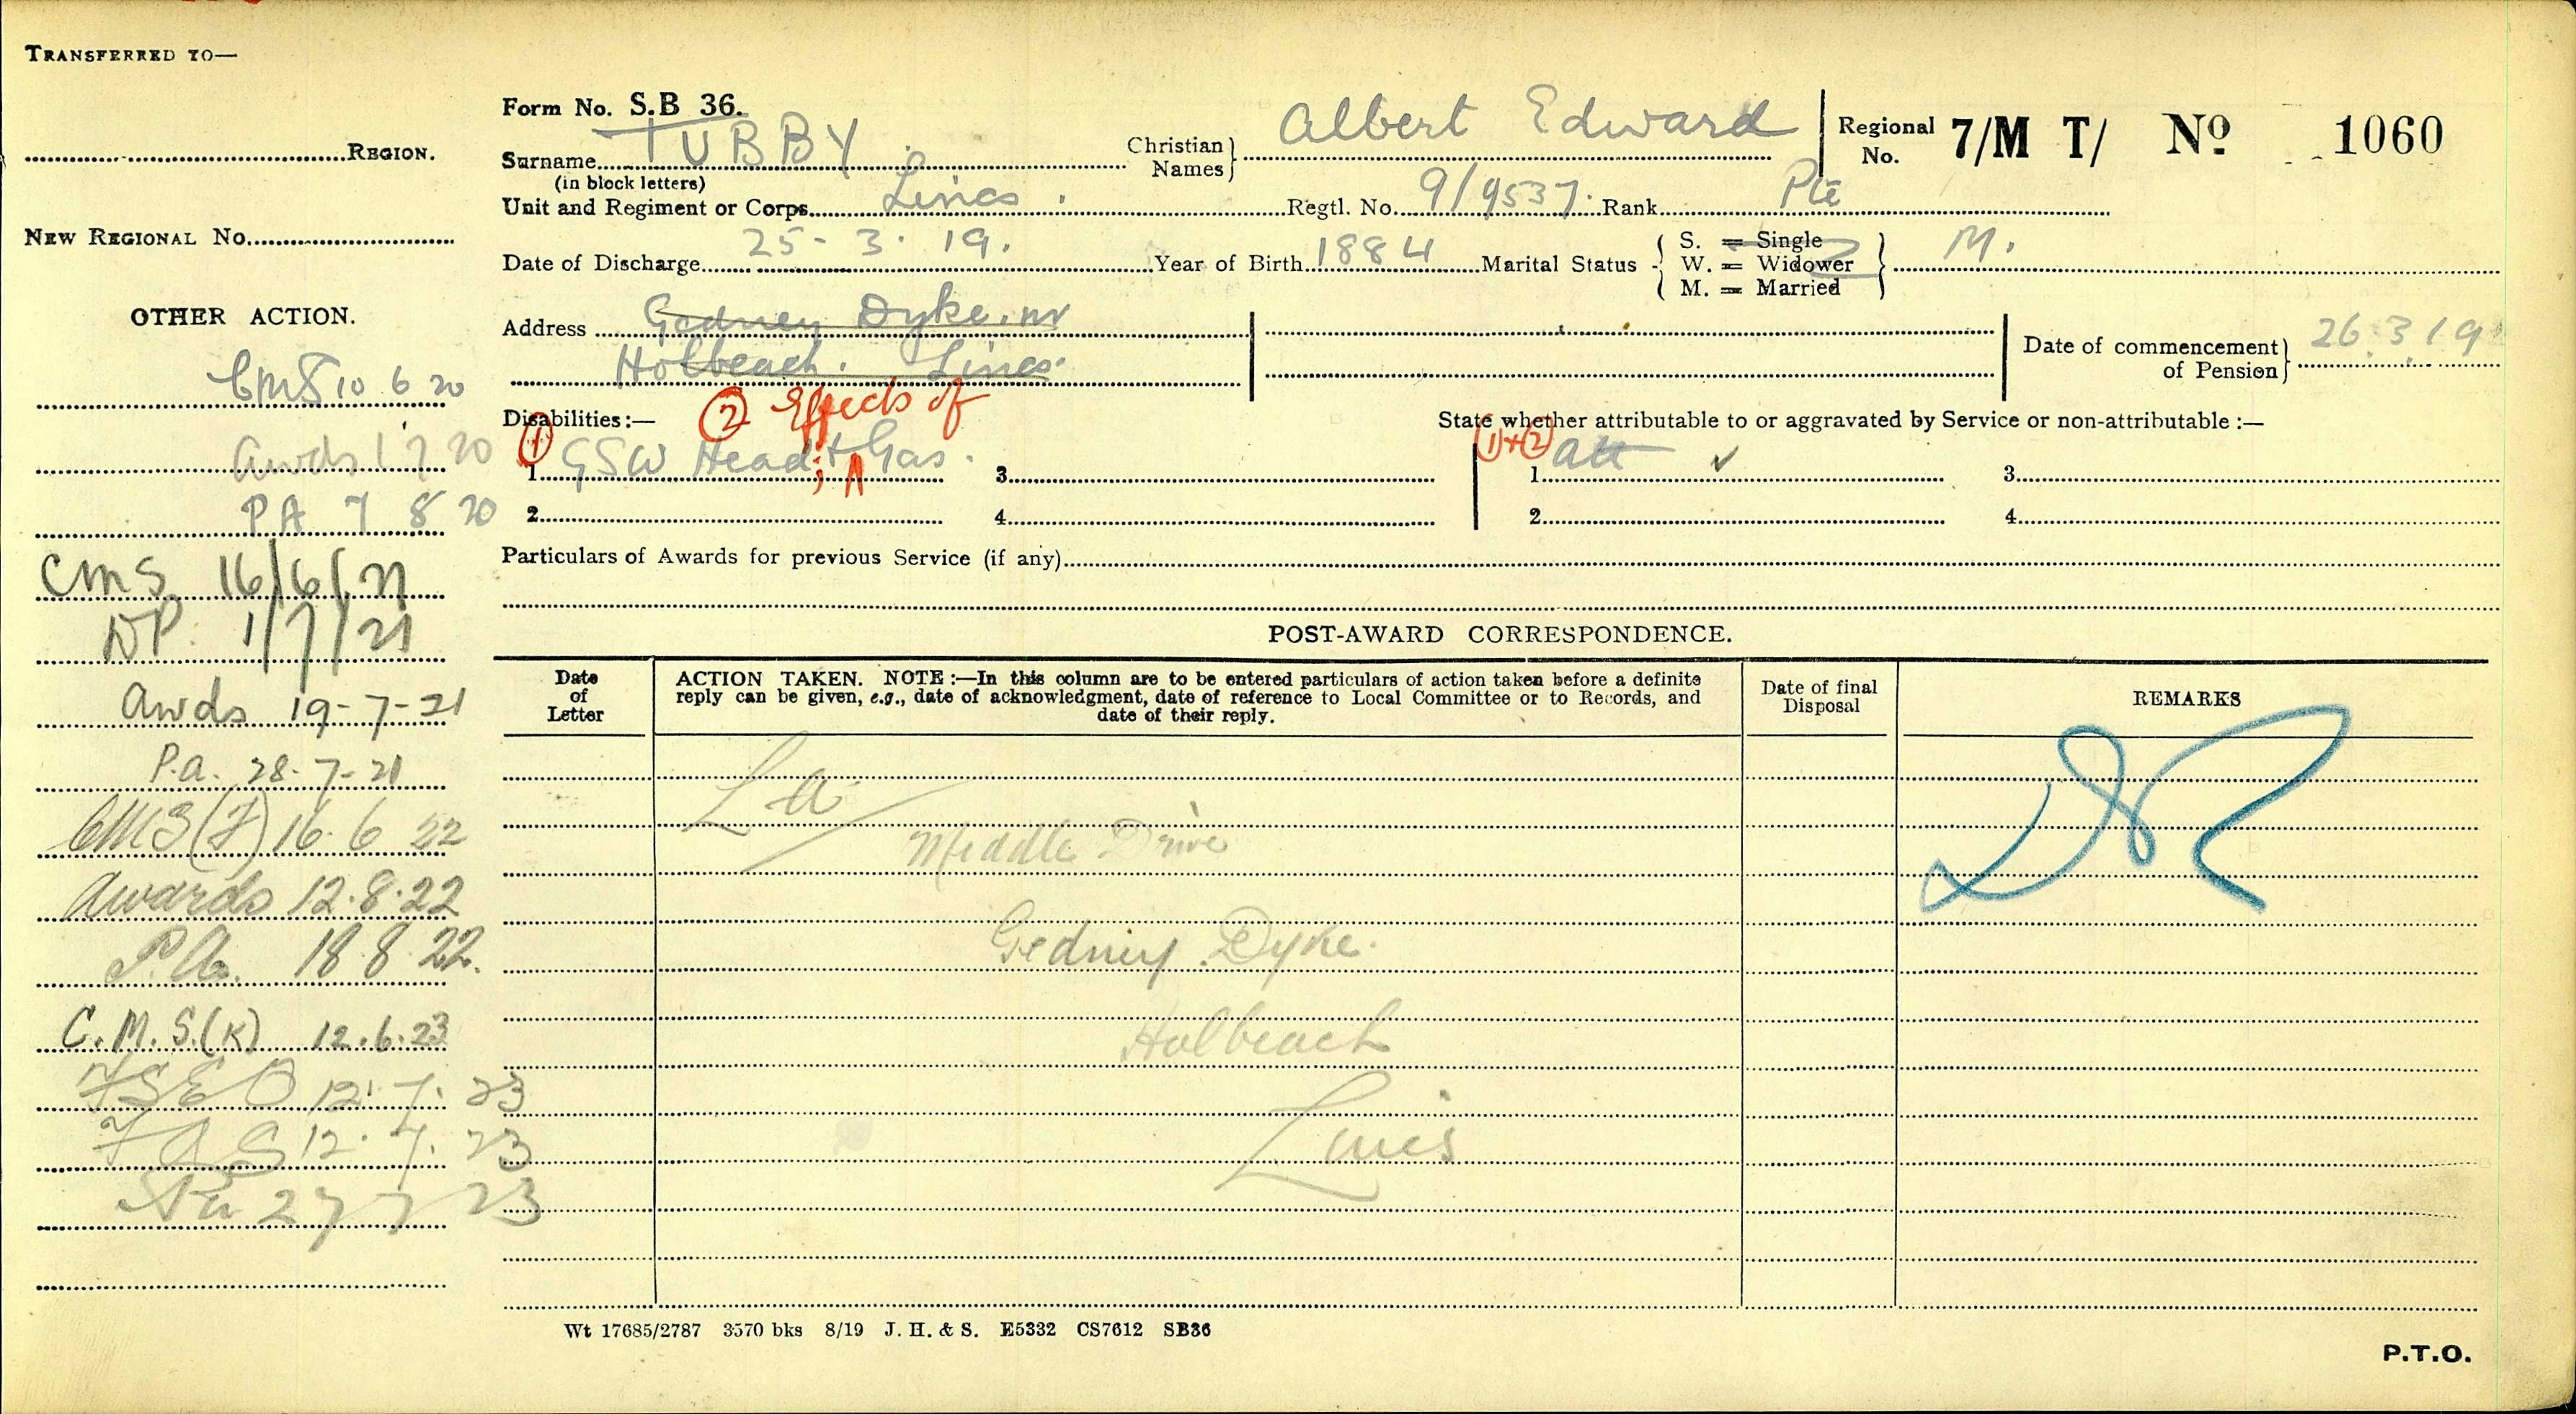 TRANSFERRED TO—
REGION.
NEW REGIONAL No.
OTHER ACTION.
CMS 10 6 20
Awds 1 7 20
PA 7 8 20
CMS 16/6/21
DP. 1/7/21
Awds 19-7-21
P.a. 28-7-21
CMS(F) 16.6 22
Awards 12.8.22
P.A. 18.8.22.
C.M.S.(K) 12.6.23
12.7.23
12.7.23
27 7 23
Form No. S.B 36.
Surname TUBBY
(in block letters)
Christian Names } Albert Edward
Regional No. 7/M T/ No 1060
Unit and Regiment or Corps Lincs. Regtl. No. 9/9537. Rank Pte
Date of Discharge 25-3.19. Year of Birth 1884 Marital Status { S. = Single W. = Widower M. = Married } M.
Address Gedney Dyke. nr
Holbeach. Lincs.
Date of commencement of Pension } 26.3.19
Disabilities:— ② Effects of
① 1. GSW Head; + Gas. 3.
2. 4.
State whether attributable to or aggravated by Service or non-attributable :—
①+② 1. att ✓ 3.
2. 4.
Particulars of Awards for previous Service (if any)
POST-AWARD CORRESPONDENCE.
Date of Letter
ACTION TAKEN. NOTE :—In this column are to be entered particulars of action taken before a definite
reply can be given, e.g., date of acknowledgment, date of reference to Local Committee or to Records, and
date of their reply.
Date of final Disposal
REMARKS
L a
Middle Drive
Gedney Dyke.
Holbeach
Lincs
Wt 17685/2787 3570 bks 8/19 J. H. & S. E5332 CS7612 SB36
P.T.O.